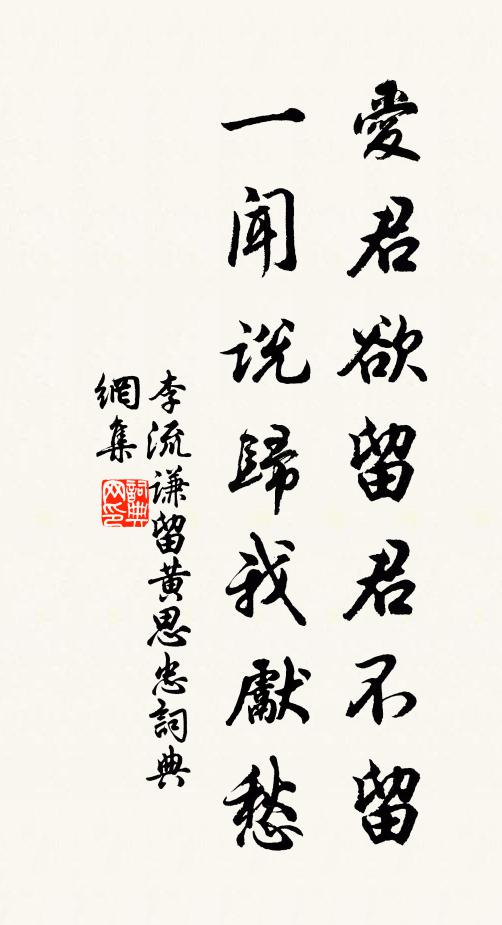 愛君欲留君不留
一聞说歸我獻愁
李流谦留黄思忠詞典
網集
詞典
网印